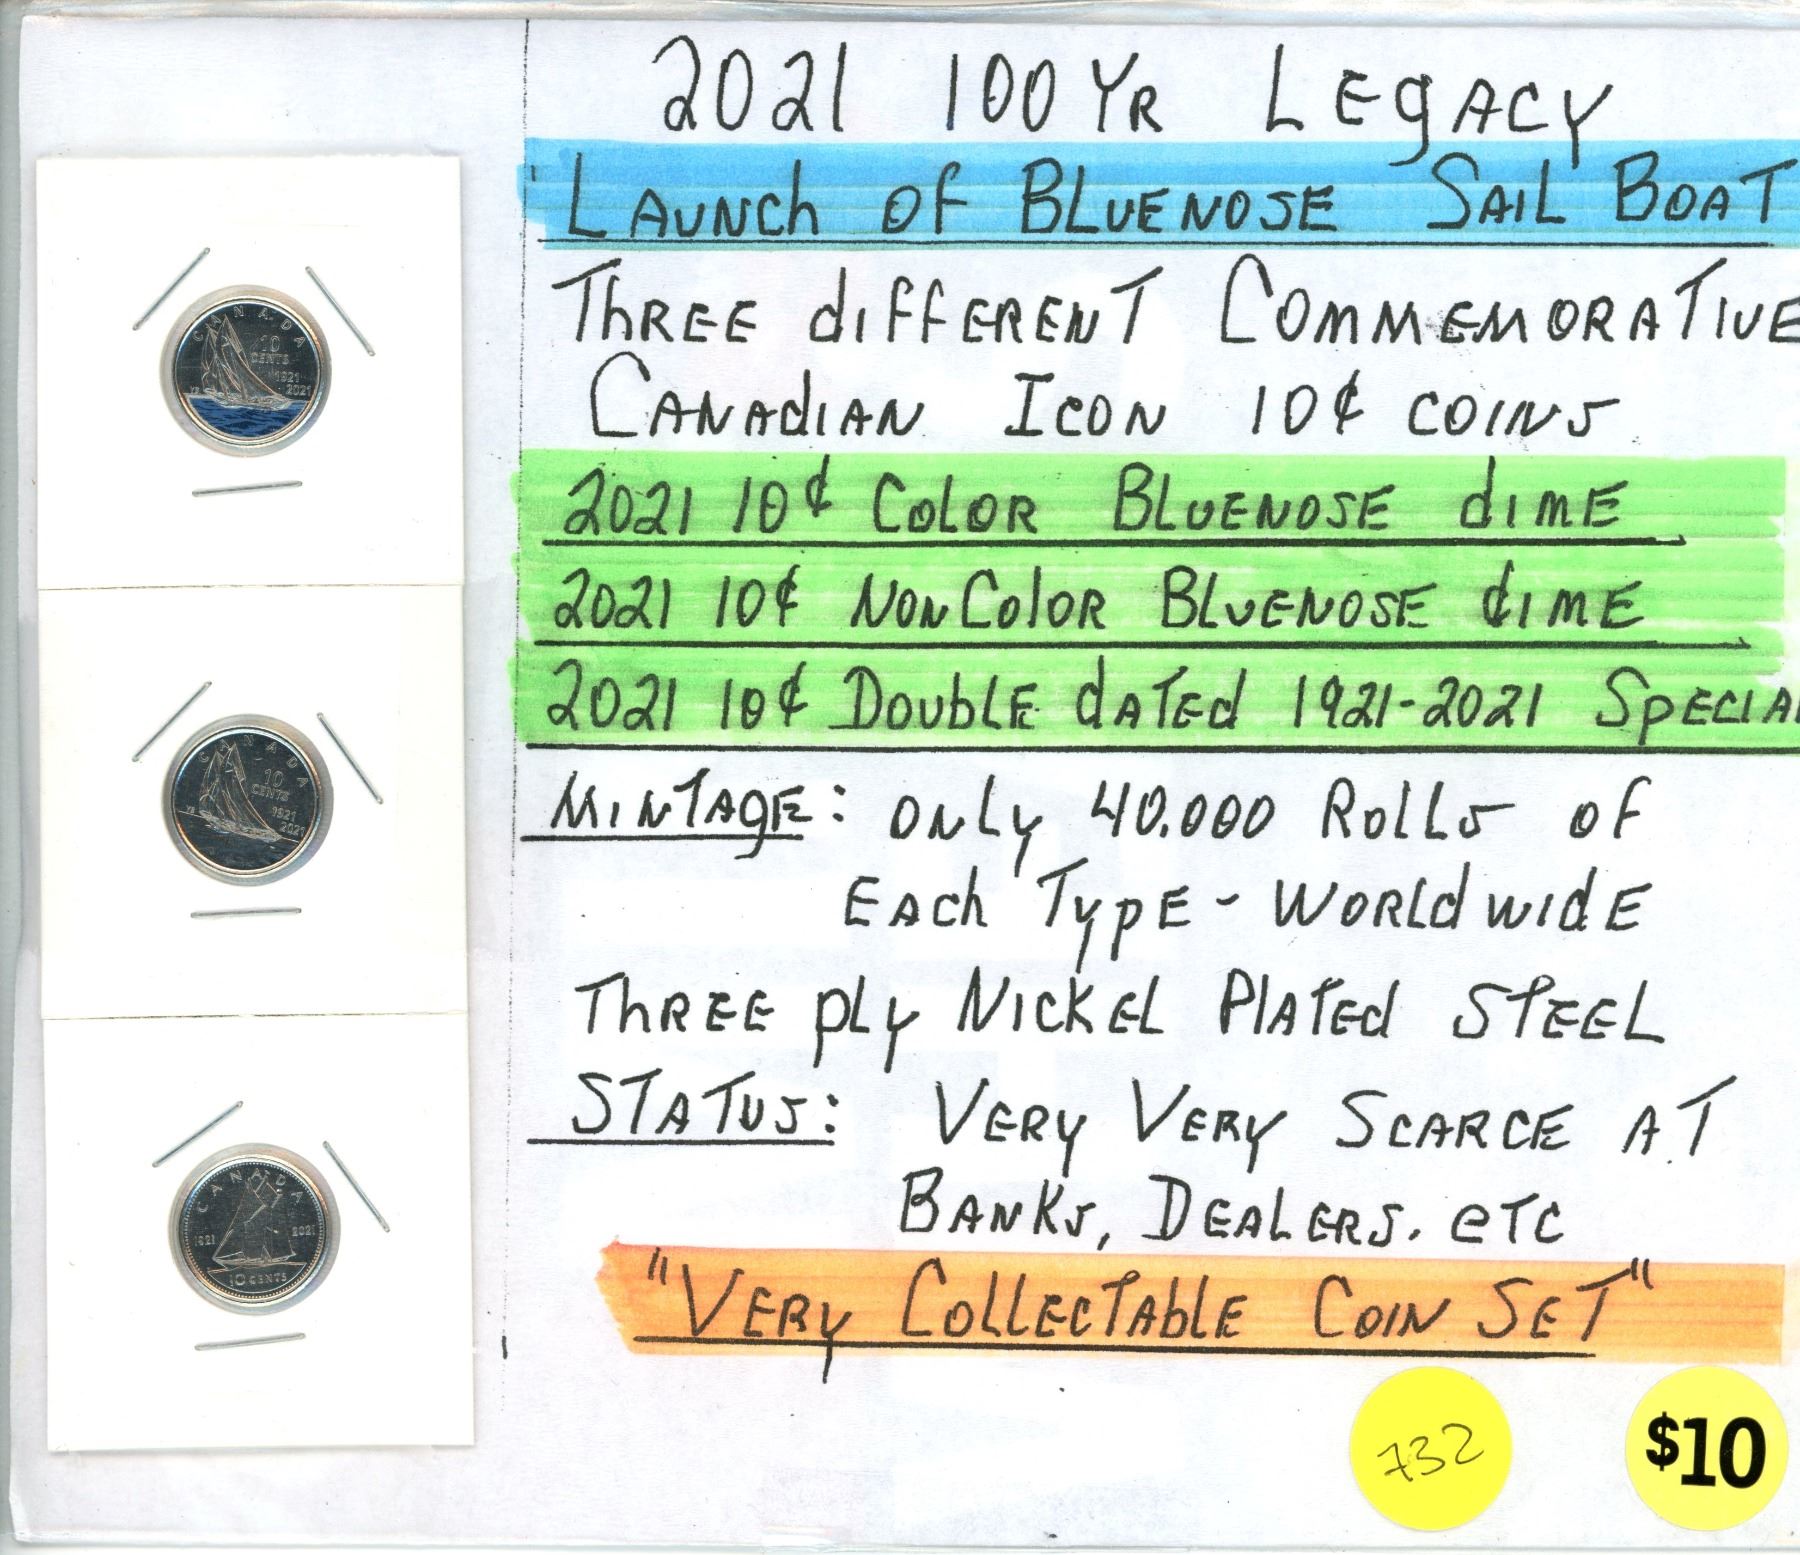 2021 100 YR LEgACY
"LAUNCh of BLUENOSE SAIL BOAT
ThREE diffERENT COMMEMORATIVE
CANAdIAN ICON 10¢ COINS
2021 10¢ COLOR BLUENOSE dIME
2021 10¢ NON COlOR BLUENOSE dIME
2021 10¢ DOUbLE dATEd 1921-2021 SpECIAL
MINTAgE: ONLy 40.000 ROLLS Of
EACh TypE - WORLd WIdE
ThREE pLy NICKEL PlATEd STEEL
STATUS: VERy VERy SCARCE AT
BANKS, DEALERS. eTC
"VERy COLLECTAbLE COIN SET"
732
$10
CANADA
10
CENTS
1921
2021
CANADA
10
CENTS
1921
2021
CANADA
1921 2021
10 CENTS